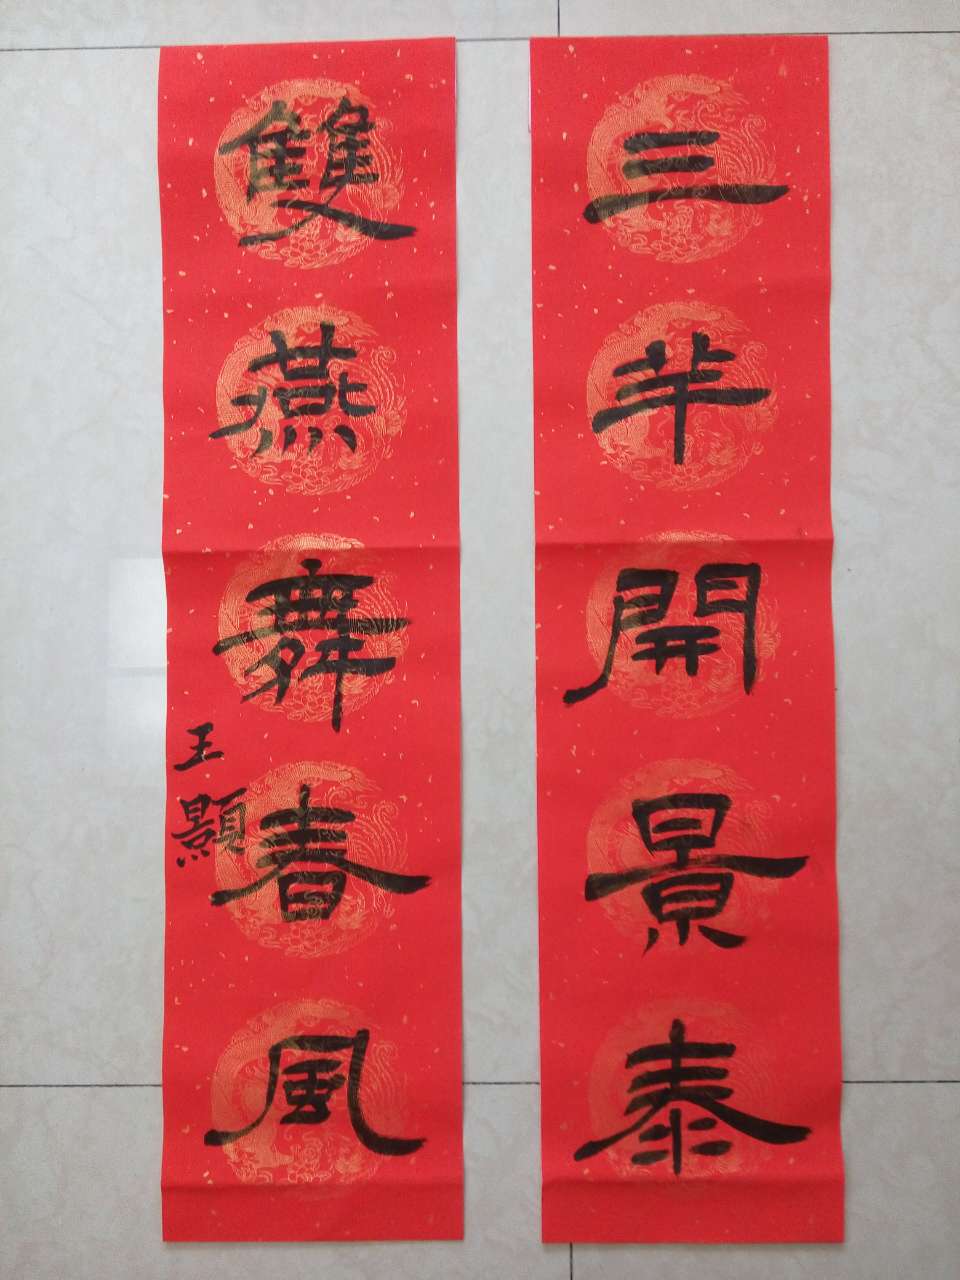 三羊開景泰
雙燕舞春風
王顥